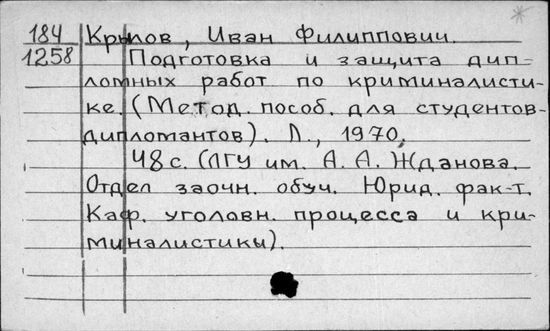 184 Крылов, Иван Филиппович.
1258 Подготовка и защита дип-
ломных работ по криминалисти-
ке. (Метод. пособ. для студентов-
дипломантов). Л., 1970.
48 с. (ЛГУ им. А. А. Жданова.
Отдел заочн. обуч. Юрид. фак-т.
Каф. уголовн. процесса и кри-
миналистики).